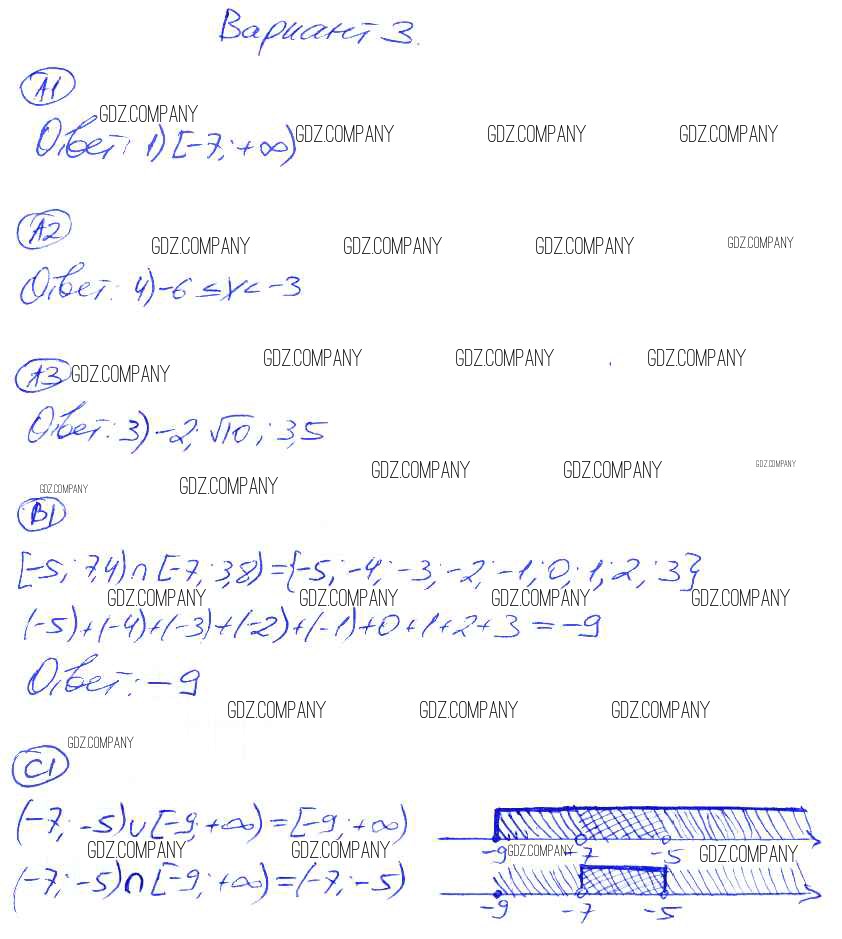 Вариант 3.
А1
GDZ.COMPANY
Ответ: 1) [-7; +∞)
GDZ.COMPANY GDZ.COMPANY GDZ.COMPANY
А2
GDZ.COMPANY GDZ.COMPANY GDZ.COMPANY GDZ.COMPANY
Ответ: 4) -6 ≤ x < -3
GDZ.COMPANY GDZ.COMPANY GDZ.COMPANY
А3 GDZ.COMPANY
Ответ: 3) -2; √10; 3,5
GDZ.COMPANY GDZ.COMPANY GDZ.COMPANY
GDZ.COMPANY GDZ.COMPANY
В1
[-5; 7,4) ∩ [-7; 3,8) = {-5; -4; -3; -2; -1; 0; 1; 2; 3}
GDZ.COMPANY GDZ.COMPANY GDZ.COMPANY GDZ.COMPANY
(-5)+(-4)+(-3)+(-2)+(-1)+0+1+2+3 = -9
Ответ: -9
GDZ.COMPANY GDZ.COMPANY GDZ.COMPANY
GDZ.COMPANY
С1
(-7; -5) ∪ [-9; +∞) = [-9; +∞)
-9 -7 -5
GDZ.COMPANY GDZ.COMPANY GDZ.COMPANY GDZ.COMPANY
(-7; -5) ∩ [-9; +∞) = (-7; -5)
-9 -7 -5